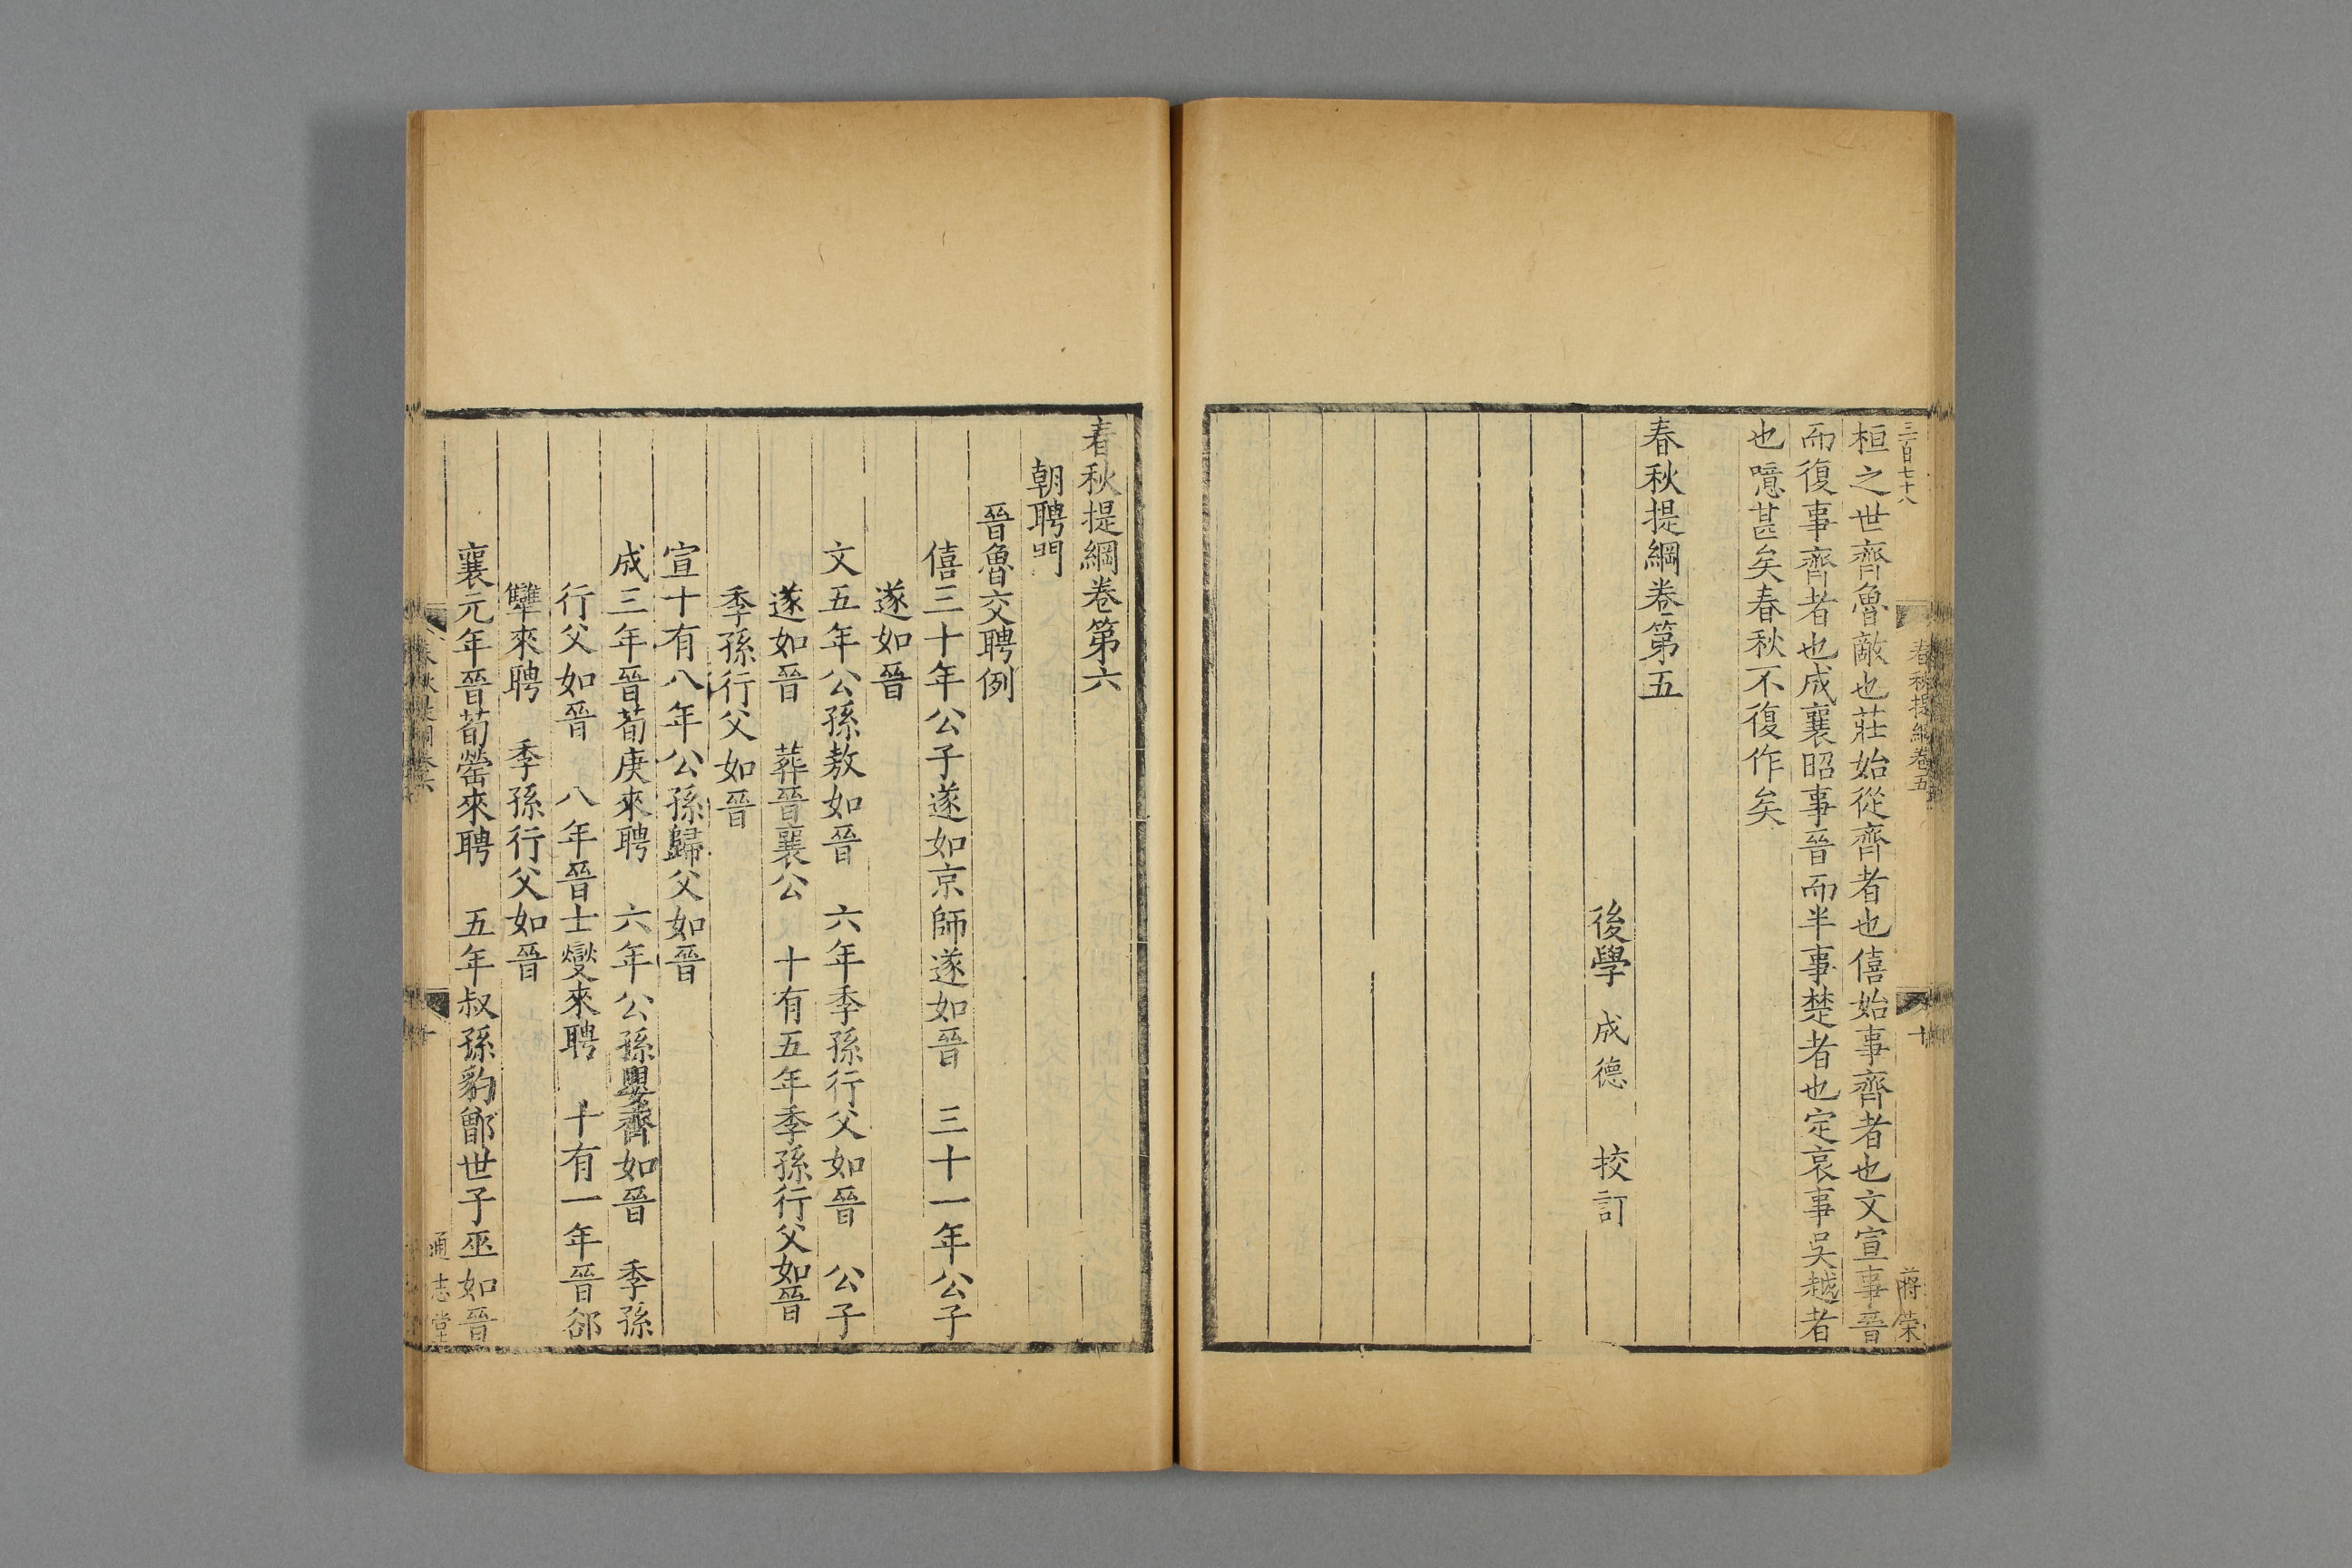 三百七十八
春秋提綱卷五
十
蔣榮
桓之世齊魯敵也莊始從齊者也僖始事齊者也文宣事晉
而復事齊者也成襄昭事晉而半事楚者也定哀事吳越者
也噫甚矣春秋不復作矣
春秋提綱卷第五
後學 成德 挍訂
春秋提綱卷第六
朝聘門
晉魯交聘例
僖三十年公子遂如京師遂如晉 三十一年公子
遂如晉
文五年公孫敖如晉 六年季孫行父如晉 公子
遂如晉 葬晉襄公 十有五年季孫行父如晉
季孫行父如晉
宣十有八年公孫歸父如晉
成三年晉荀庚來聘 六年公孫嬰齊如晉 季孫
行父如晉 八年晉士燮來聘 十有一年晉郤
犨來聘 季孫行父如晉
襄元年晉荀罃來聘 五年叔孫豹鄫世子巫如晉
通志堂